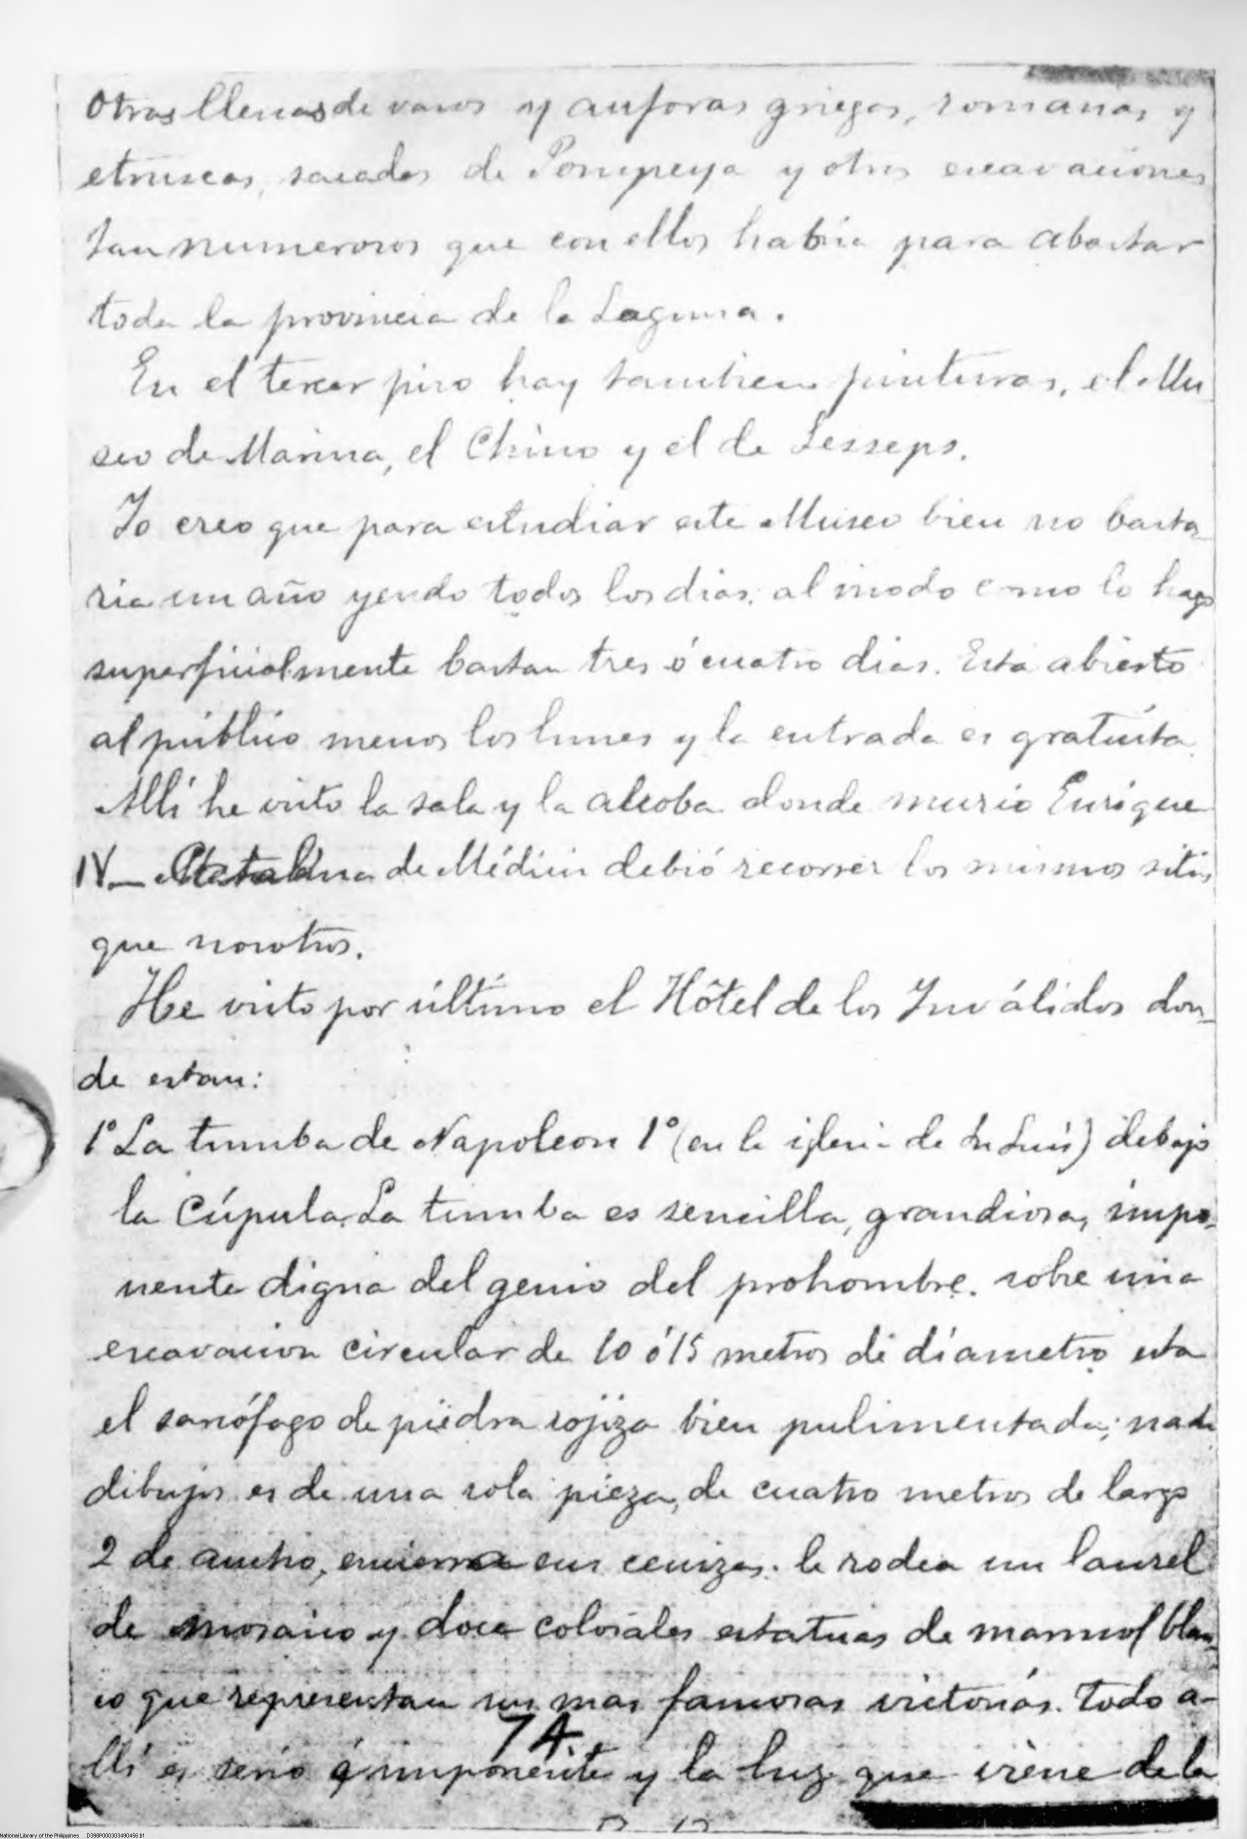 Otras llenas de vasos y anforas griegas, romanas, y
etruscas, sacadas de Pompeya y otras excavaciones
tan numerosos que con ellos habria para abastar
toda la provincia de la Laguna.
En el tercer piso hay tambien pinturas, el Mu
seo de Marina, el Chino y el de Lesseps.
Yo creo que para estudiar este Museo bien no basta
ria un año yendo todos los dias: al modo como lo hago
superficialmente bastan tres ó cuatro dias. Está abierto
al público menos los lunes y la entrada es gratuita.
Allí he visto la sala y la alcoba donde murió Enrique
IV_ Catalina de Médicis debió recorrer los mismos sitios
que nosotros.
He visto por último el Hôtel de los Inválidos don_
de estan:
1º La tumba de Napoleon 1º (en la iglesia de Sn Luis) debajo
la cúpula. La tumba es sencilla, grandiosa, impo_
nente digna del genio del prohombre. sobre una
excavacion circular de 10 ó 15 metros de diámetro esta
el sarcófago de piedra rojiza bien pulimentada; nada
dibujos es de una sola pieza, de cuatro metros de largo
2 de ancho, encierra sus cenizas. le rodea un laurel
de mosaico y doce colosales estatuas de marmol blan_
co que representan sus mas famosas victorias. Todo a-
llí es serio é imponente y la luz que viene de la
74
National Library of the Philippines